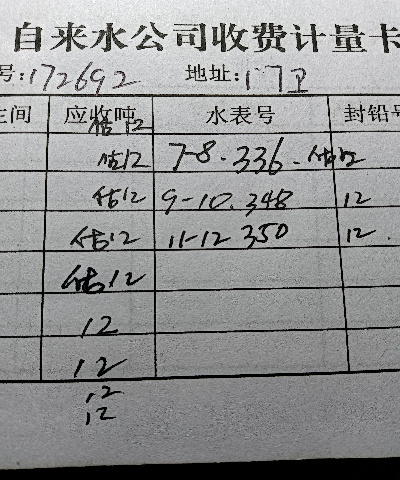 自来水公司收费计量卡
号:172692 地址:1
间 应收吨 水表号 封铅号
估12
估12 7-8.336-估12
估12 9-10.348 12
估12 11-12 350 12.
估12
12
12
12
12